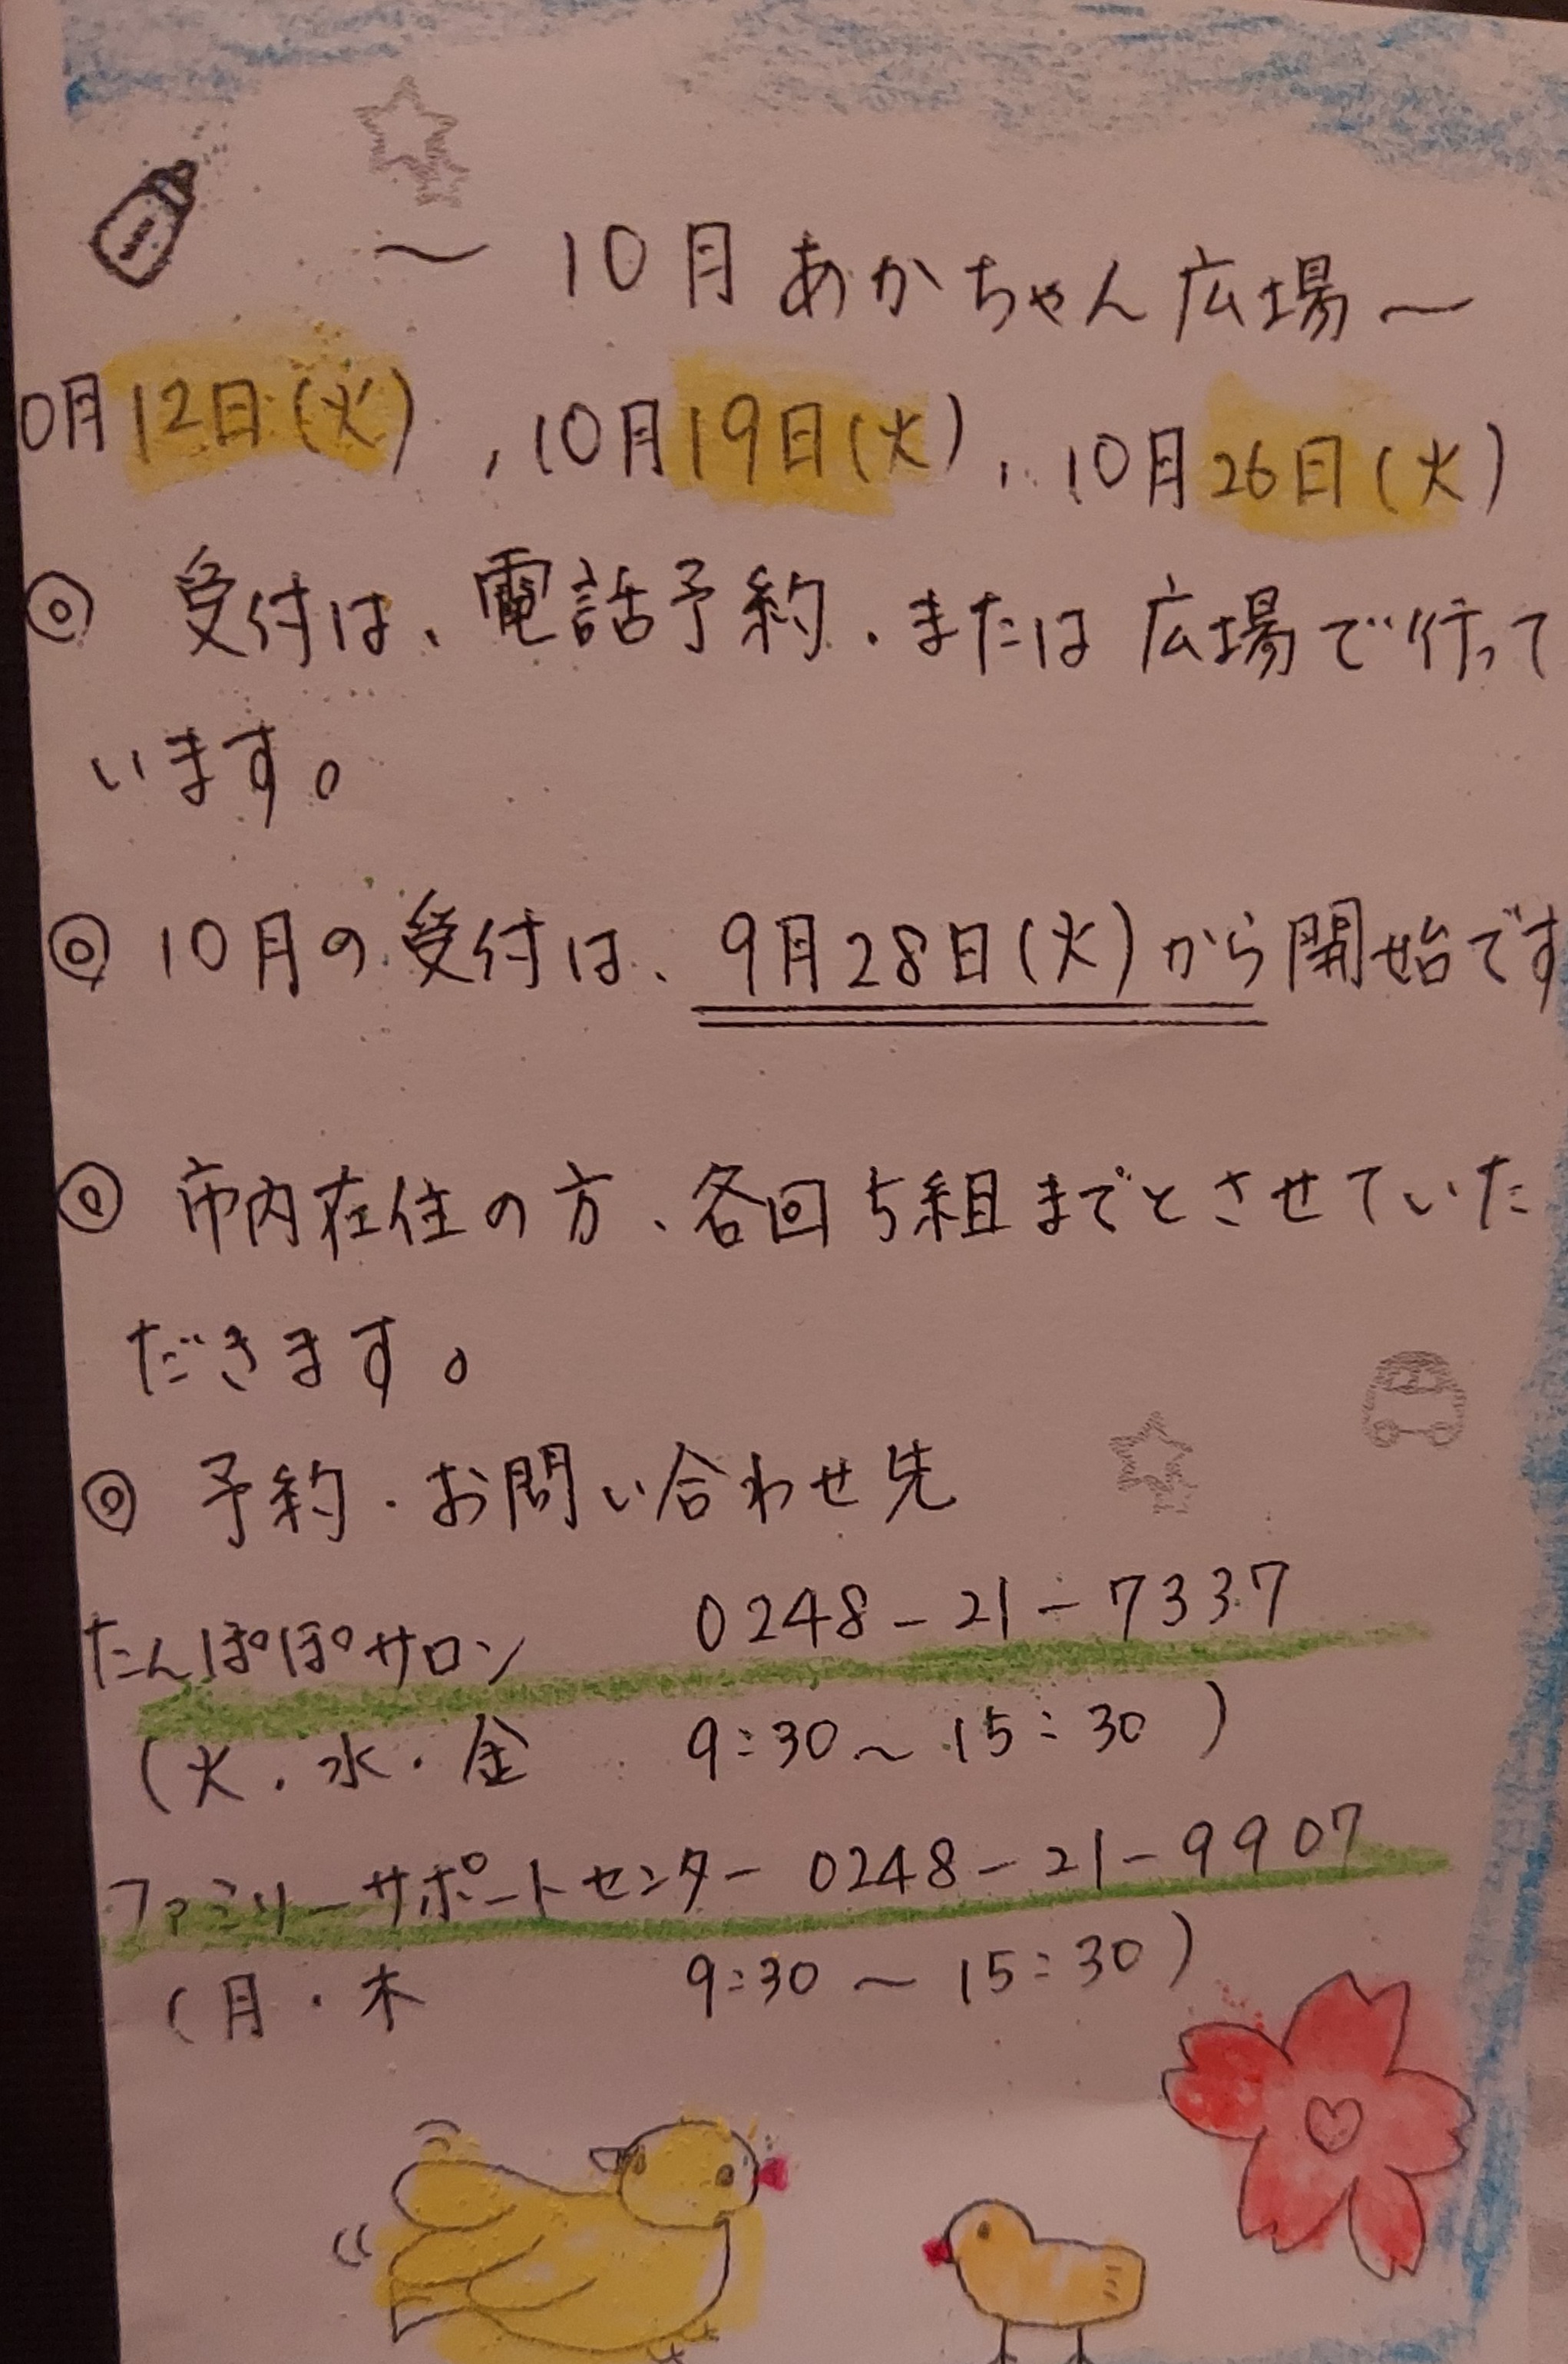 ～ 10月 あかちゃん広場～
0月12日(火) , 10月19日(火) , 10月26日(火)
◎ 受付は、電話予約、または広場で行って
います。
◎ 10月の受付は、9月28日(火)から開始です
◎ 市内在住の方、各回5組までとさせていた
だきます。
◎ 予約・お問い合わせ先
たんぽぽサロン 0248-21-7337
(火・水・金 9:30～15:30)
ファミリーサポートセンター 0248-21-9907
(月・木 9:30～15:30)